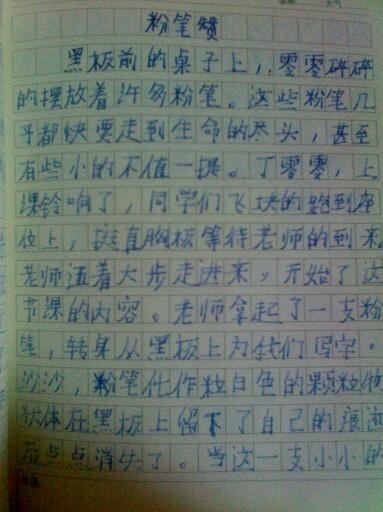 粉笔赞
黑板前的桌子上,,零零碎碎
的摆放着许多粉笔。这些粉笔几
乎都快要走到生命的尽头,甚至
有些小的不值一提。丁零零,上
课铃响了,同学们飞块的跑到座
位上,挺直胸板等待老师的到来
老师迈着大步走进来,开始了这
节课的内容。老师拿起了一支粉
笔,转身从黑板上为我们写字。
沙沙,粉笔化作粒白色的颗粒物
状体在黑板上留下了自己的痕迹
后点点消失了。当这一支小小的